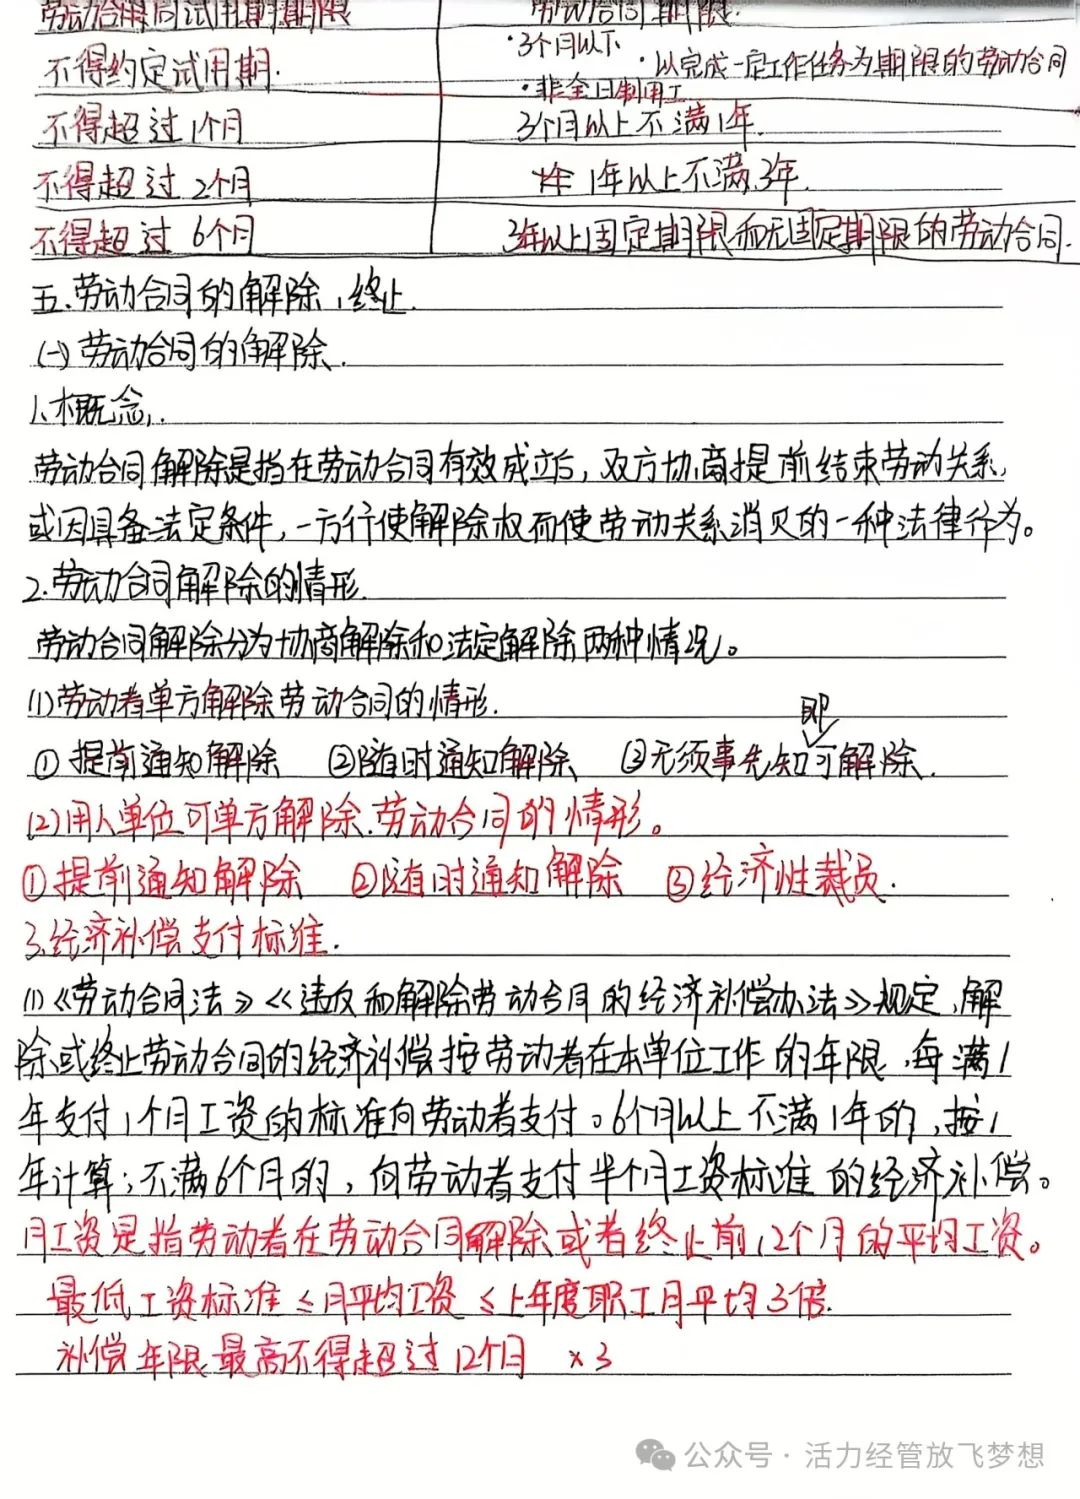 劳动合同试用期期限 劳动合同期限.
不得约定试用期. ·3个月以下 ·以完成一定工作任务为期限的劳动合同
·非全日制用工
不得超过1个月 3个月以上不满1年.
不得超过2个月 1年以上不满3年.
不得超过6个月 3年以上固定期限和无固定期限的劳动合同.
五.劳动合同的解除、终止.
(一)劳动合同的解除.
1、概念.
劳动合同解除是指在劳动合同有效成立后,双方协商提前结束劳动关系,
或因具备法定条件,一方行使解除权而使劳动关系消灭的一种法律行为。
2.劳动合同解除的情形.
劳动合同解除分为协商解除和法定解除两种情况。
(1)劳动者单方解除劳动合同的情形.
即
①提前通知解除 ②随时通知解除 ③无须事先知可解除.
(2)用人单位可单方解除劳动合同的情形。
①提前通知解除 ②随时通知解除 ③经济性裁员.
3.经济补偿支付标准.
(1)《劳动合同法》《违反和解除劳动合同的经济补偿办法》规定,解
除或终止劳动合同的经济补偿按劳动者在本单位工作的年限,每满1
年支付1个月工资的标准向劳动者支付。6个月以上不满1年的,按1
年计算;不满6个月的,向劳动者支付半个月工资标准的经济补偿。
月工资是指劳动者在劳动合同解除或者终止前12个月的平均工资。
最低工资标准≤月平均工资≤上年度职工月平均3倍.
补偿年限最高不得超过12个月 ×3
公众号·活力经管放飞梦想